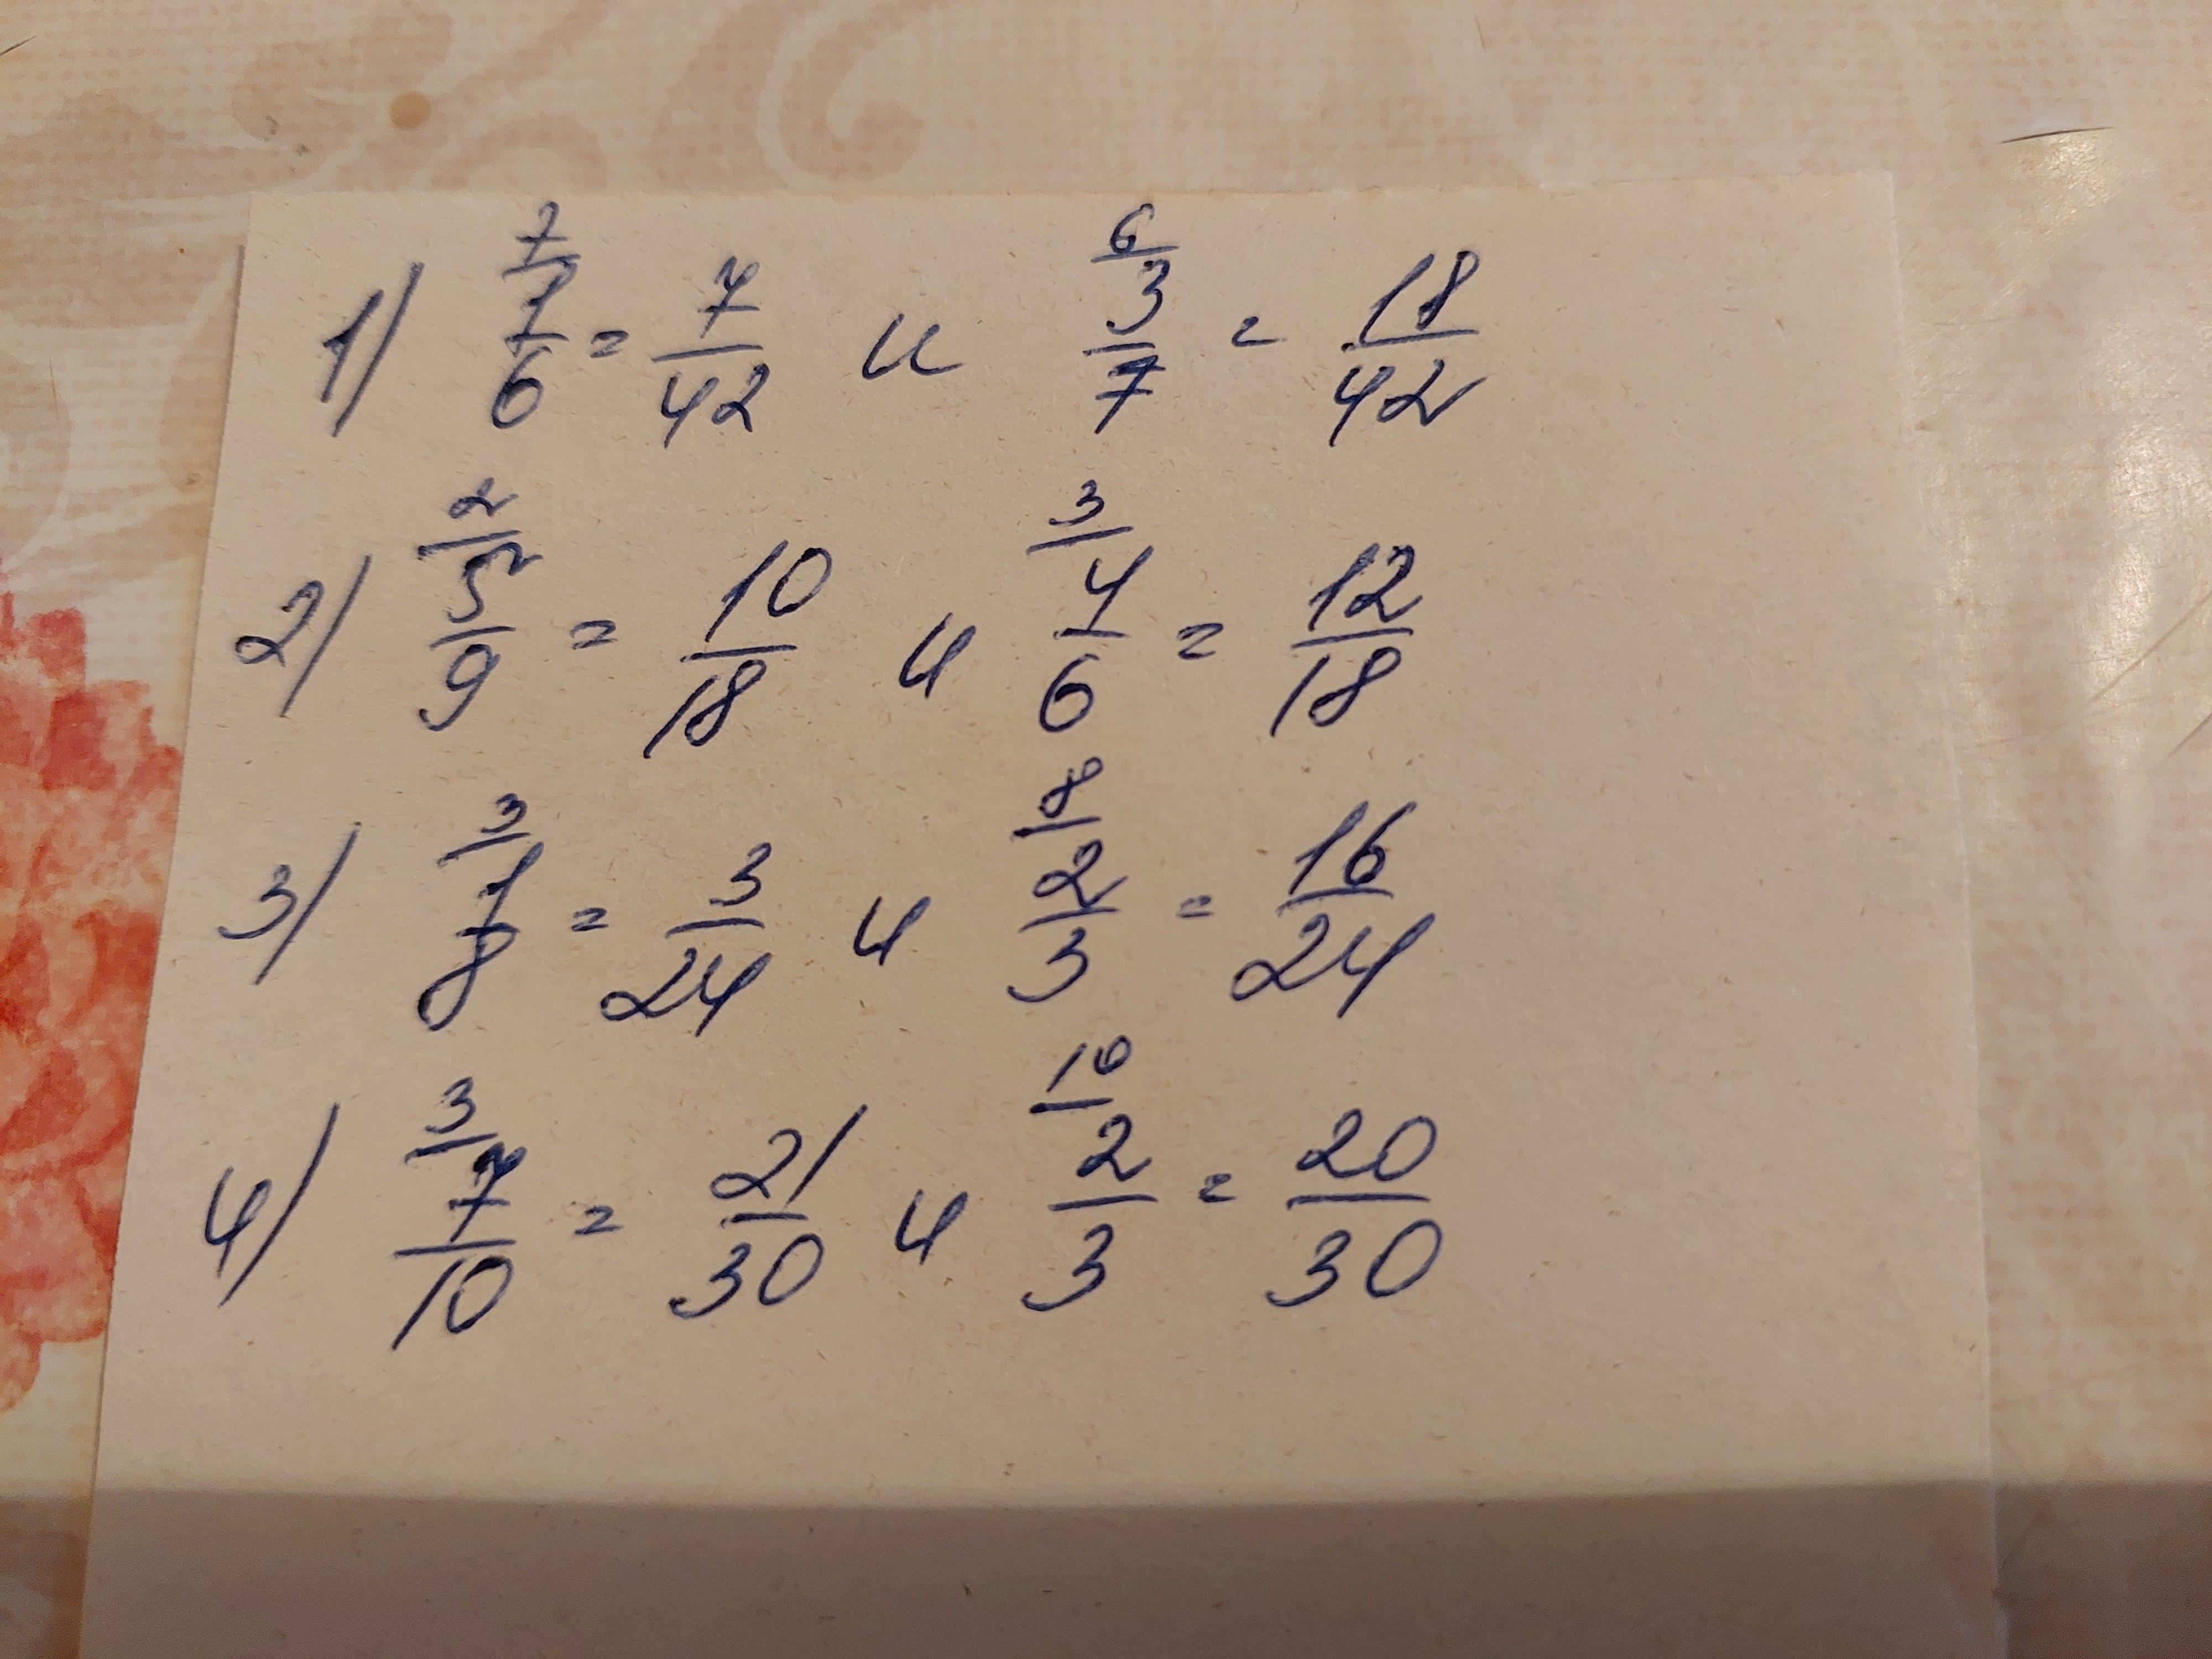 1) 7/ 1/6 = 7/42 и 6/ 3/7 = 18/42
2) 2/ 5/9 = 10/18 и 3/ 4/6 = 12/18
3) 3/ 1/8 = 3/24 и 8/ 2/3 = 16/24
4) 3/ 7/10 = 21/30 и 10/ 2/3 = 20/30